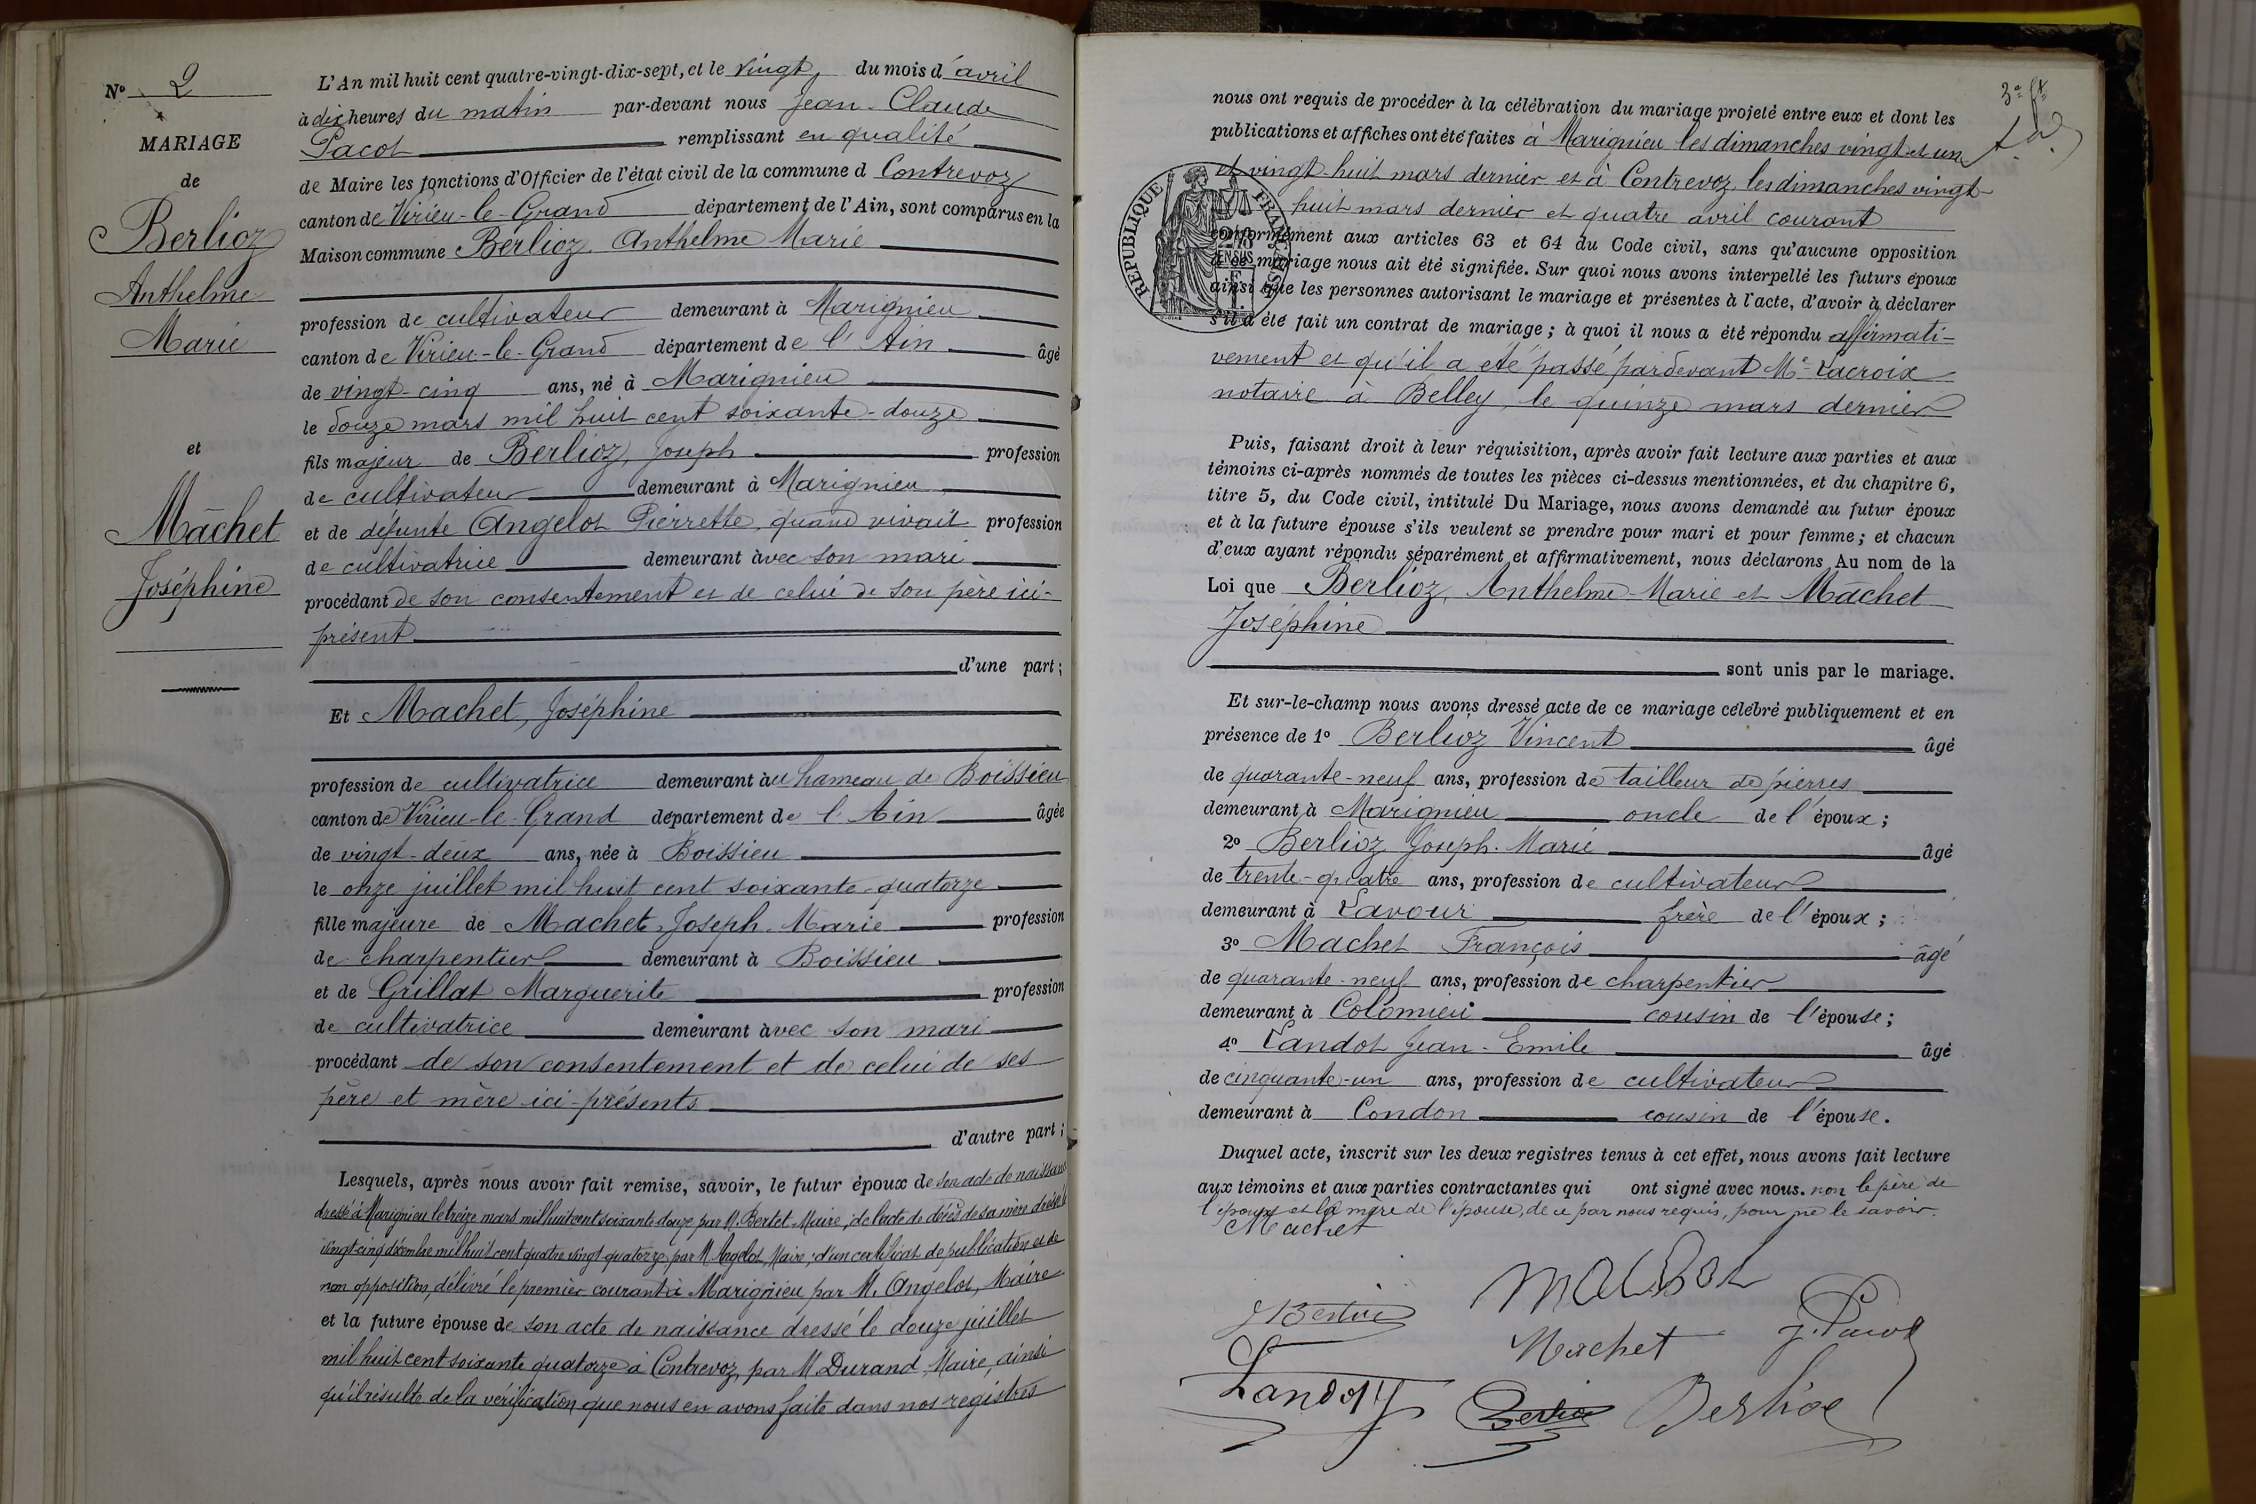 N° 2
MARIAGE
de
Berlioz
Anthelme
Marie
et
Mâchet
Joséphine
L'An mil huit cent quatre-vingt-dix-sept, et le vingt, du mois d'avril
à dix heures du matin par-devant nous Jean-Claude
Pacot remplissant en qualité
de Maire les fonctions d'Officier de l'état civil de la commune d Contrevoz
canton de Virieu-le-Grand département de l'Ain, sont comparus en la
Maison commune Berlioz Anthelme Marie
profession de cultivateur demeurant à Marignieu
canton de Virieu-le-Grand département de l'Ain âgé
de vingt-cinq ans, né à Marignieu
le douze mars mil huit cent soixante-douze
fils majeur de Berlioz, Joseph profession
de cultivateur demeurant à Marignieu
et de défunte Angelot Pierrette, quand vivait profession
de cultivatrice demeurant avec son mari
procédant de son consentement et de celui de son père ici-
présent
d'une part;
Et Machet, Joséphine
profession de cultivatrice demeurant au hameau de Boissieu
canton de Virieu-le-Grand département de l'Ain âgée
de vingt-deux ans, née à Boissieu
le onze juillet mil huit cent soixante-quatorze
fille majeure de Machet, Joseph-Marie profession
de charpentier demeurant à Boissieu
et de Grillat Marguerite profession
de cultivatrice demeurant avec son mari
procédant de son consentement et de celui de ses
père et mère ici présents
d'autre part;
Lesquels, après nous avoir fait remise, savoir, le futur époux de son acte de naissance
dressé à Marignieu le treize mars mil huit cent soixante douze par M. Bertet Maire; de l'acte de décès de sa mère dressé le
vingt-cinq décembre mil huit cent quatre vingt quatorze par M. Angelot, Maire; d'un certificat de publication et de
non opposition, délivré le premier courant à Marignieu par M. Angelot, Maire
et la future épouse de son acte de naissance dressé le douze juillet
mil huit cent soixante quatorze à Contrevoz, par M. Durand, Maire, ainsi
qu'il résulte de la vérification que nous en avons faite dans nos registres
nous ont requis de procéder à la célébration du mariage projeté entre eux et dont les
publications et affiches ont été faites à Marignieu les dimanches vingt et un
et vingt-huit mars dernier et à Contrevoz les dimanches vingt-
huit mars dernier et quatre avril courant
RÉPUBLIQUE FRANÇAISE
conformément aux articles 63 et 64 du Code civil, sans qu'aucune opposition
à ce mariage nous ait été signifiée. Sur quoi nous avons interpellé les futurs époux
ainsi que les personnes autorisant le mariage et présentes à l'acte, d'avoir à déclarer
s'il a été fait un contrat de mariage; à quoi il nous a été répondu affirmati-
vement et qu'il a été passé pardevant Me Lacroix
notaire à Belley, le quinze mars dernier
Puis, faisant droit à leur réquisition, après avoir fait lecture aux parties et aux
témoins ci-après nommés de toutes les pièces ci-dessus mentionnées, et du chapitre 6,
titre 5, du Code civil, intitulé Du Mariage, nous avons demandé au futur époux
et à la future épouse s'ils veulent se prendre pour mari et pour femme; et chacun
d'eux ayant répondu séparément et affirmativement, nous déclarons Au nom de la
Loi que Berlioz, Anthelme-Marie et Mâchet
Joséphine
sont unis par le mariage.
Et sur-le-champ nous avons dressé acte de ce mariage célébré publiquement et en
présence de 1° Berlioz Vincent âgé
de quarante-neuf ans, profession de tailleur de pierres
demeurant à Marignieu oncle de l'époux;
2° Berlioz Joseph-Marie âgé
de trente-quatre ans, profession de cultivateur
demeurant à Lavour frère de l'époux;
3° Machet François âgé
de quarante-neuf ans, profession de charpentier
demeurant à Colomieu cousin de l'épouse;
4° Landot Jean-Emile âgé
de cinquante-un ans, profession de cultivateur
demeurant à Condon cousin de l'épouse.
Duquel acte, inscrit sur les deux registres tenus à cet effet, nous avons fait lecture
aux témoins et aux parties contractantes qui ont signé avec nous. non le père de
l'époux et la mère de l'épouse, de ce par nous requis, pour ne le savoir.
Machet
Machet J. Pacot
Landot Berlioz Berlioz